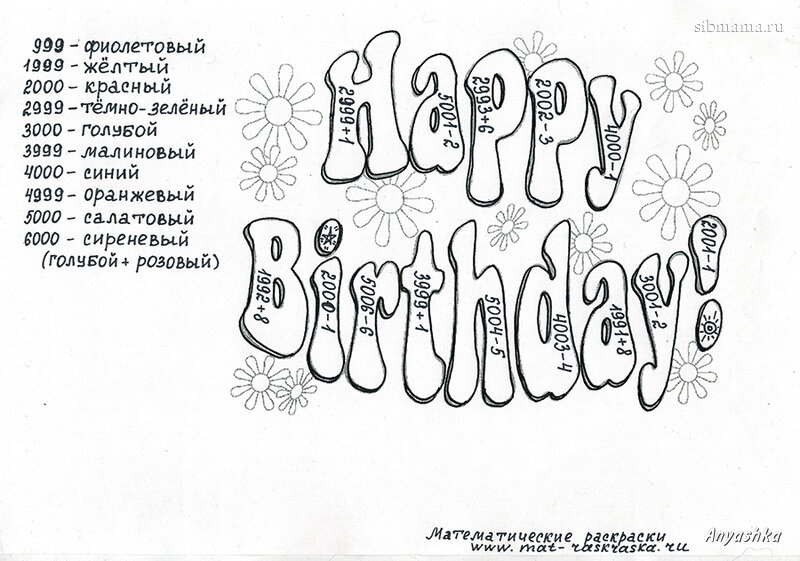 sibmama.ru
999 - фиолетовый
1999 - жёлтый
2000 - красный
2999 - тёмно-зелёный
3000 - голубой
3999 - малиновый
4000 - синий
4999 - оранжевый
5000 - салатовый
6000 - сиреневый
(голубой + розовый)
Happy
2999+1
5001-2
2993+6
2002-3
4000-1
Birthday!
1992+8
2000-1
5006-6
3999+1
5004-5
4003-4
1991+8
3001-2
2001-1
Математические раскраски
www.mat-raskraska.ru
Anyashka